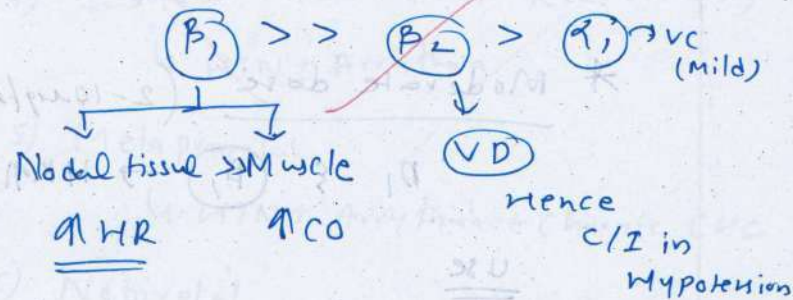 β₁ >> β₂ > α₁ → VC
(Mild)
Nodal tissue >> Muscle
VD
↑ HR ↑ CO
Hence
C/I in
Hypotension